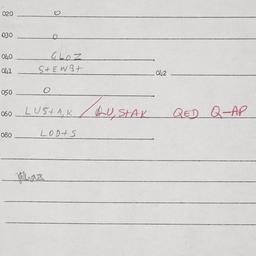 020 0
030 0
040 GLOZ
041 S+EWB+ 042
050 0
060 LUS+A,K / QU,S+AK QED Q-AP
080 LOD+S